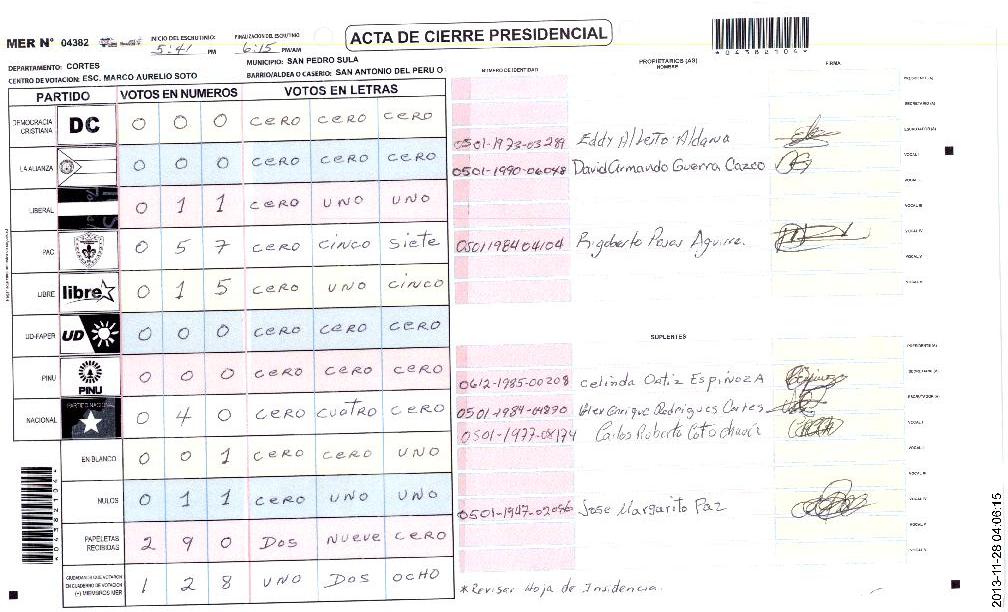 ACTA DE CIERRE PRESIDENCIAL
MER N° 04382
INICIO DEL ESCRUTINIO: 5:41 PM
FINALIZACION DEL ESCRUTINIO 6:15 PM/AM
*04382104*
DEPARTAMENTO: CORTES
MUNICIPIO: SAN PEDRO SULA
CENTRO DE VOTACION: ESC. MARCO AURELIO SOTO
BARRIO/ALDEA O CASERIO: SAN ANTONIO DEL PERU O
PARTIDO VOTOS EN NUMEROS VOTOS EN LETRAS
DEMOCRACIA CRISTIANA DC 0 0 0 CERO CERO CERO
LA ALIANZA 0 0 0 CERO CERO CERO
LIBERAL 0 1 1 CERO UNO UNO
PAC 0 5 7 CERO CINCO SIETE
LIBRE libre 0 1 5 CERO UNO CINCO
UD-FAPER UD 0 0 0 CERO CERO CERO
PINU PINU 0 0 0 CERO CERO CERO
NACIONAL PARTIDO NACIONAL 0 4 0 CERO CUATRO CERO
EN BLANCO 0 0 1 CERO CERO UNO
NULOS 0 1 1 CERO UNO UNO
PAPELETAS RECIBIDAS 2 9 0 DOS NUEVE CERO
CIUDADANOS QUE VOTARON EN CUADERNO DE VOTACION (+) MIEMBROS MER 1 2 8 UNO DOS OCHO
NUMERO DE IDENTIDAD
PROPIETARIOS (AS)
NOMBRE
FIRMA
PRESIDENTE (A)
SECRETARIO (A)
ESCRUTADOR (A)
0501-1973-03289 Eddy Alberto Aldana
VOCAL I
0501-1990-06048 David Armando Guerra
VOCAL II
VOCAL III
VOCAL IV
0501 1984 04104 Rigoberto Aguirre
VOCAL V
SUPLENTES
PRESIDENTE (A)
SECRETARIO (A)
0612-1985-00208 Celinda Ortiz EspinozA
ESCRUTADOR (A)
Enrique Rodrigues Cortes
VOCAL I
Carlos Roberto
VOCAL II
VOCAL III
VOCAL IV
0501-1947-02096 Jose Margarito Paz
VOCAL V
*Revisar Hoja de Insidencia.
*04382104*
2013-11-28 04:06:15